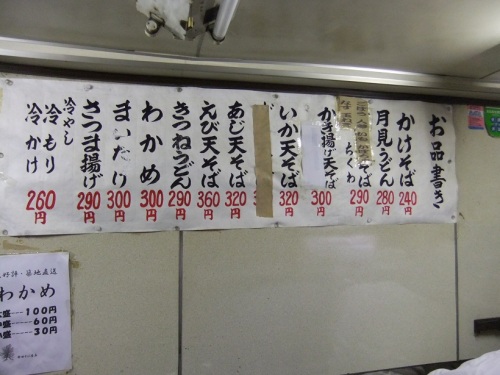 お品書き
かけそば 240円
月見うどん 280円
ちくわ そば 290円
かき揚げ天そば 300円
いか天そば 320円
あじ天そば 320
えび天そば 360円
きつねうどん 290円
わかめ 300円
まいたけ 300円
さつま揚げ 290円
冷やし
冷もり
冷かけ
260円
好評・築地直送
わかめ
---100円
-----60円
-----30円